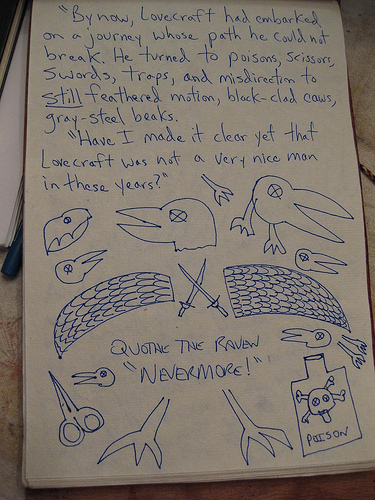 "By now, Lovecraft had embarked
on a journey whose path he could not
break. He turned to poisons, scissors,
swords, traps, and misdirection to
still feathered motion, black-clad caws,
gray-steel beaks.
"Have I made it clear yet that
Lovecraft was not a very nice man
in these years?"
QUOTHE THE RAVEN
"NEVERMORE!"
POISON